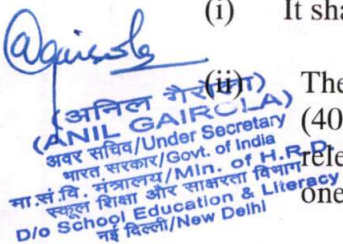 (i) It sha
(ii) The
(अनिल गैरोला)
(ANIL GAIROLA) (40
अवर सचिव/Under Secretary
भारत सरकार/Govt. of India rele
मा.सं.वि. मंत्रालय/Min. of H.R.D. one
स्कूल शिक्षा और साक्षरता विभाग
D/o School Education & Literacy
नई दिल्ली/New Delhi